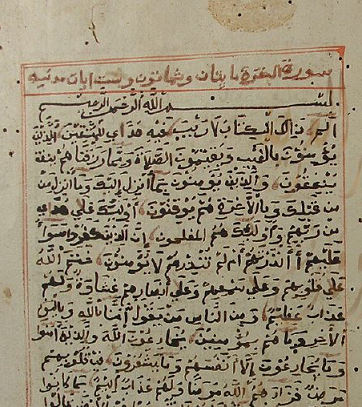 سورة البقرة مايتان وثمانون وست ايات مدنيه
بسم الله الرحمن الرحيم
الم ذلك الكتاب لا ريب فيه هدى للمتقين الذين
يؤمنون بالغيب ويقيمون الصلاة ومما رزقناهم
ينفقون والذين يؤمنون بما انزل اليك وما انزل من
من قبلك وبالاخرة هم يوقنون اولئك على هدى
من ربهم واولئك هم المفلحون ان الذين كفروا سواء
عليهم أانذرتهم ام لم تنذرهم لا يؤمنون ختم الله
على قلوبهم وعلى سمعهم وعلى ابصارهم غشاوة ولهم
عذاب عظيم ومن الناس من يقول امنا بالله وباليوم
الاخر وما هم بمؤمنين يخادعون الله والذين امنوا
وما يخادعون الا انفسهم وما يشعرون في قلوبهم
مرض فزادهم الله مرضا ولهم عذاب اليم بما كانوا